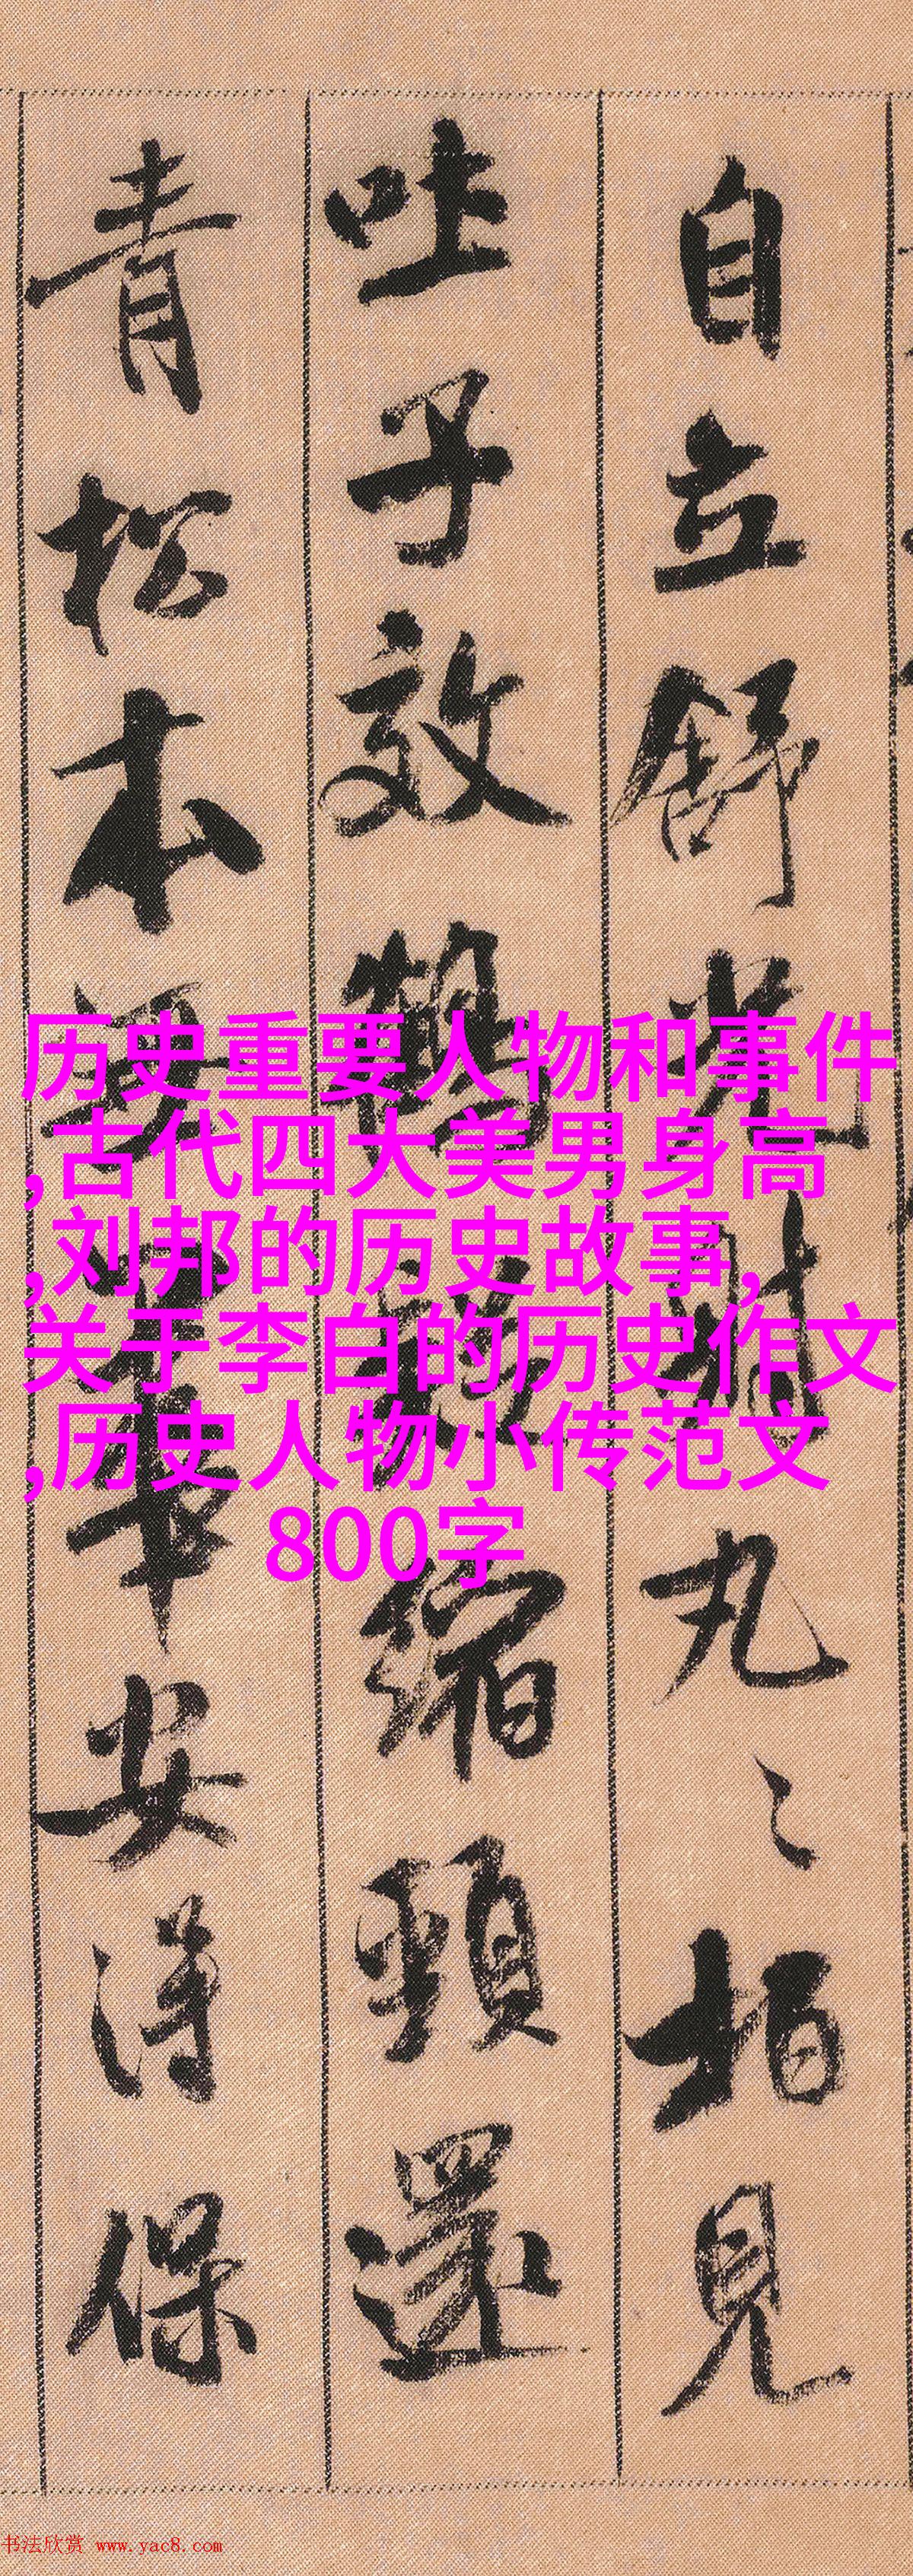 自立舒光射丸〻柏見
吐子效鶴疑縮頸還
青松本無華安得保
历史重要人物和事件
,古代四大美男身高
,刘邦的历史故事,
关于李白的历史作文
,历史人物小传范文
800字
书法欣赏 www.yac8.com